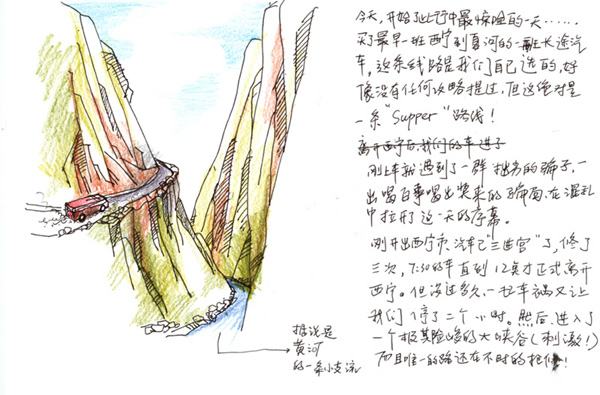 今天,开始了此行中最惊险的一天……
买了最早一班西宁到夏河的一班长途汽
车,这条线路是我们自己选的,好
像没有任何攻略提过,但这绝对是
一条“Supper”路线!
离开西宁后,我们的车进了
刚上车就遇到了一群拙劣的骗子,一
出喝百事喝出奖来的骗局,在混乱
中拉开了这一天的序幕。
刚开出西宁市,汽车已“三进宫”了,修了
三次,7:30的车直到12点才正式离开
西宁。但没过多久,一起车祸又让
我们停了二个小时。然后,进入了
一个极其险峻的大峡谷(刺激!)
而且唯一的路还在不时的抢修!
据说是
黄河
的一条小支流